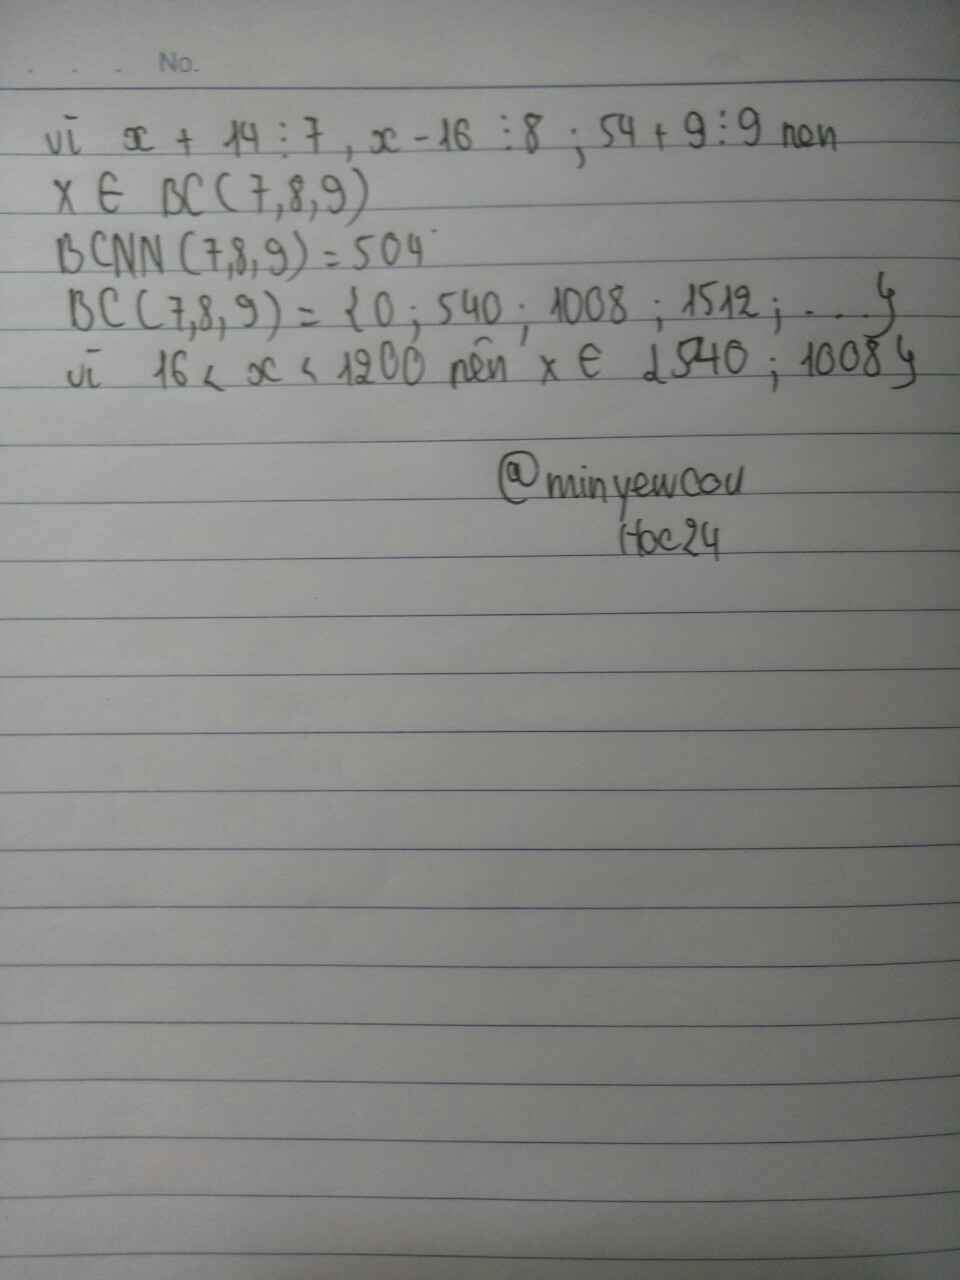 No.
vì x + 14 ⋮ 7, x - 16 ⋮ 8 ; 54 + 9 ⋮ 9 nen
x ∈ BC (7,8,9)
BCNN (7,8,9) = 504
BC (7,8,9) = {0 ; 540 ; 1008 ; 1512 ; ....}
vì 16 < x < 1200 nên x ∈ {540 ; 1008}
@minyewcou
Hoc24